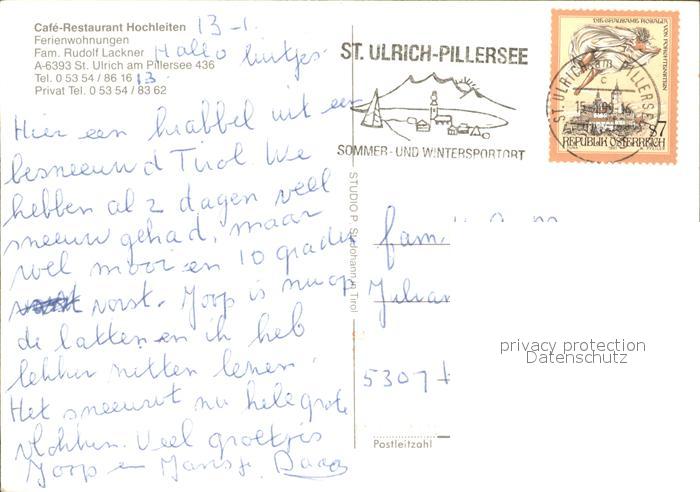 Café-Restaurant Hochleiten 13-1.
Ferienwohnungen
Fam. Rudolf Lackner Hallo
A-6393 St. Ulrich am Pillersee 436
Tel. 0 53 54 / 86 16 13
Privat Tel. 0 53 54 / 83 62
Hier een krabbel uit een
besneeuwd Tirol. We
hebben al 2 dagen veel
sneeuw gehad, maar
wel mooi en 10 graden
vorst. Joop is nu op
de latten en ik heb
lekker zitten lezen.
Het sneeuwt nu hele grote
vlokken. Veel groetjes
Joop en
ST. ULRICH-PILLERSEE
SOMMER- UND WINTERSPORTORT
DIE GRAUSAME ROSALIA VON FORCHTENSTEIN
ST. ULRICH PILLERSEE
S7
REPUBLIK ÖSTERREICH
STUDIO P. St. Johann in Tirol
fam.
5307
Postleitzahl
privacy protection
Datenschutz